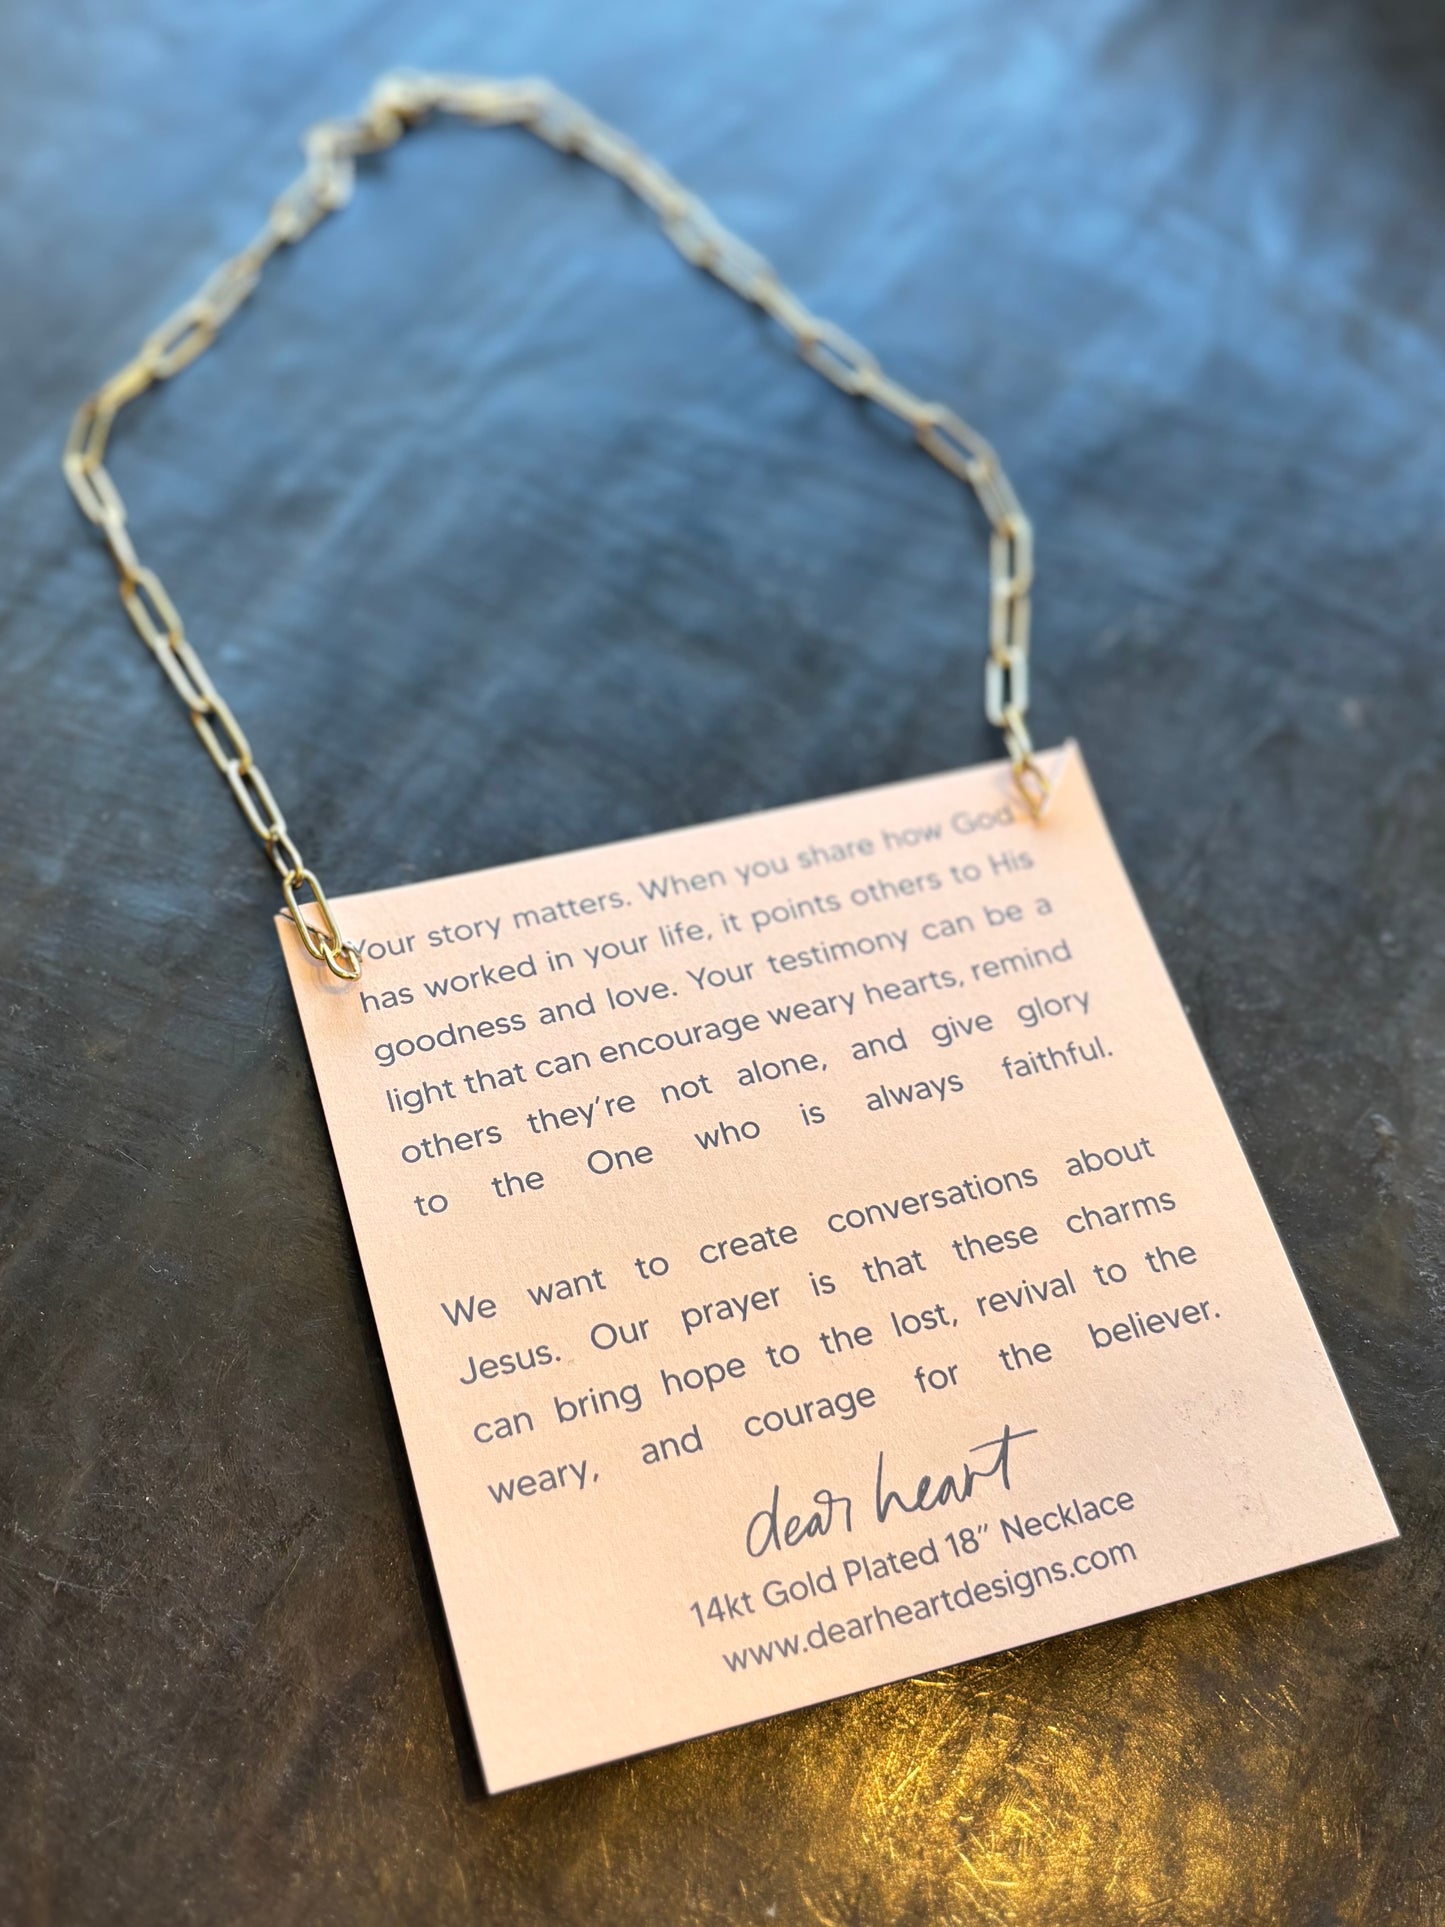 Your story matters. When you share how God
has worked in your life, it points others to His
goodness and love. Your testimony can be a
light that can encourage weary hearts, remind
others they're not alone, and give glory
to the One who is always faithful.
We want to create conversations about
Jesus. Our prayer is that these charms
can bring hope to the lost, revival to the
weary, and courage for the believer.
dear heart
14kt Gold Plated 18" Necklace
www.dearheartdesigns.com